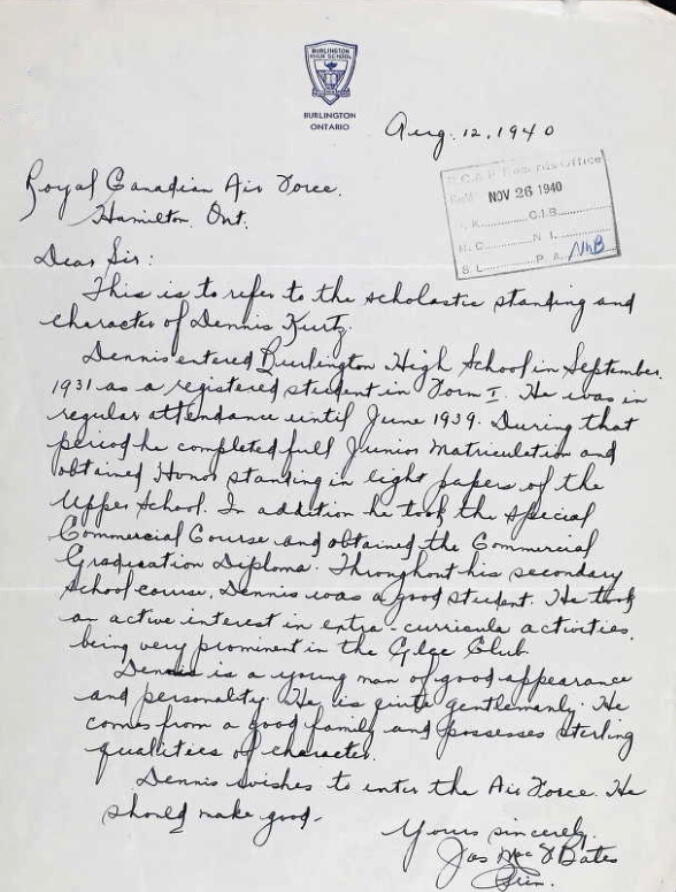 BURLINGTON
HIGH SCHOOL
BURLINGTON
ONTARIO
Aug. 12, 1940
R.C.A.F. Records Office
NOV 26 1940
K. C.I.B.
N.C. N.I.
S L P.A.
Royal Canadian Air Force.
Hamilton. Ont.
Dear Sir:
This is to refer to the scholastic standing and
character of Dennis Kurtz.
Dennis entered Burlington High School in September
1931 as a registered student in Form I. He was in
regular attendance until June 1939. During that
period he completed full Junior Matriculation and
obtained Honor standing in eight papers of the
Upper School. In addition he took the special
Commercial Course and obtained the Commercial
Graduation Diploma. Throughout his secondary
school course, Dennis was a good student. He took
an active interest in extra-curricula activities,
being very prominent in the Glee Club.
Dennis is a young man of good appearance
and personality. He is quite gentlemanly. He
comes from a good family and possesses sterling
qualities of character.
Dennis wishes to enter the Air Force. He
should make good.
Yours sincerely,
Jas Bates
Prin.